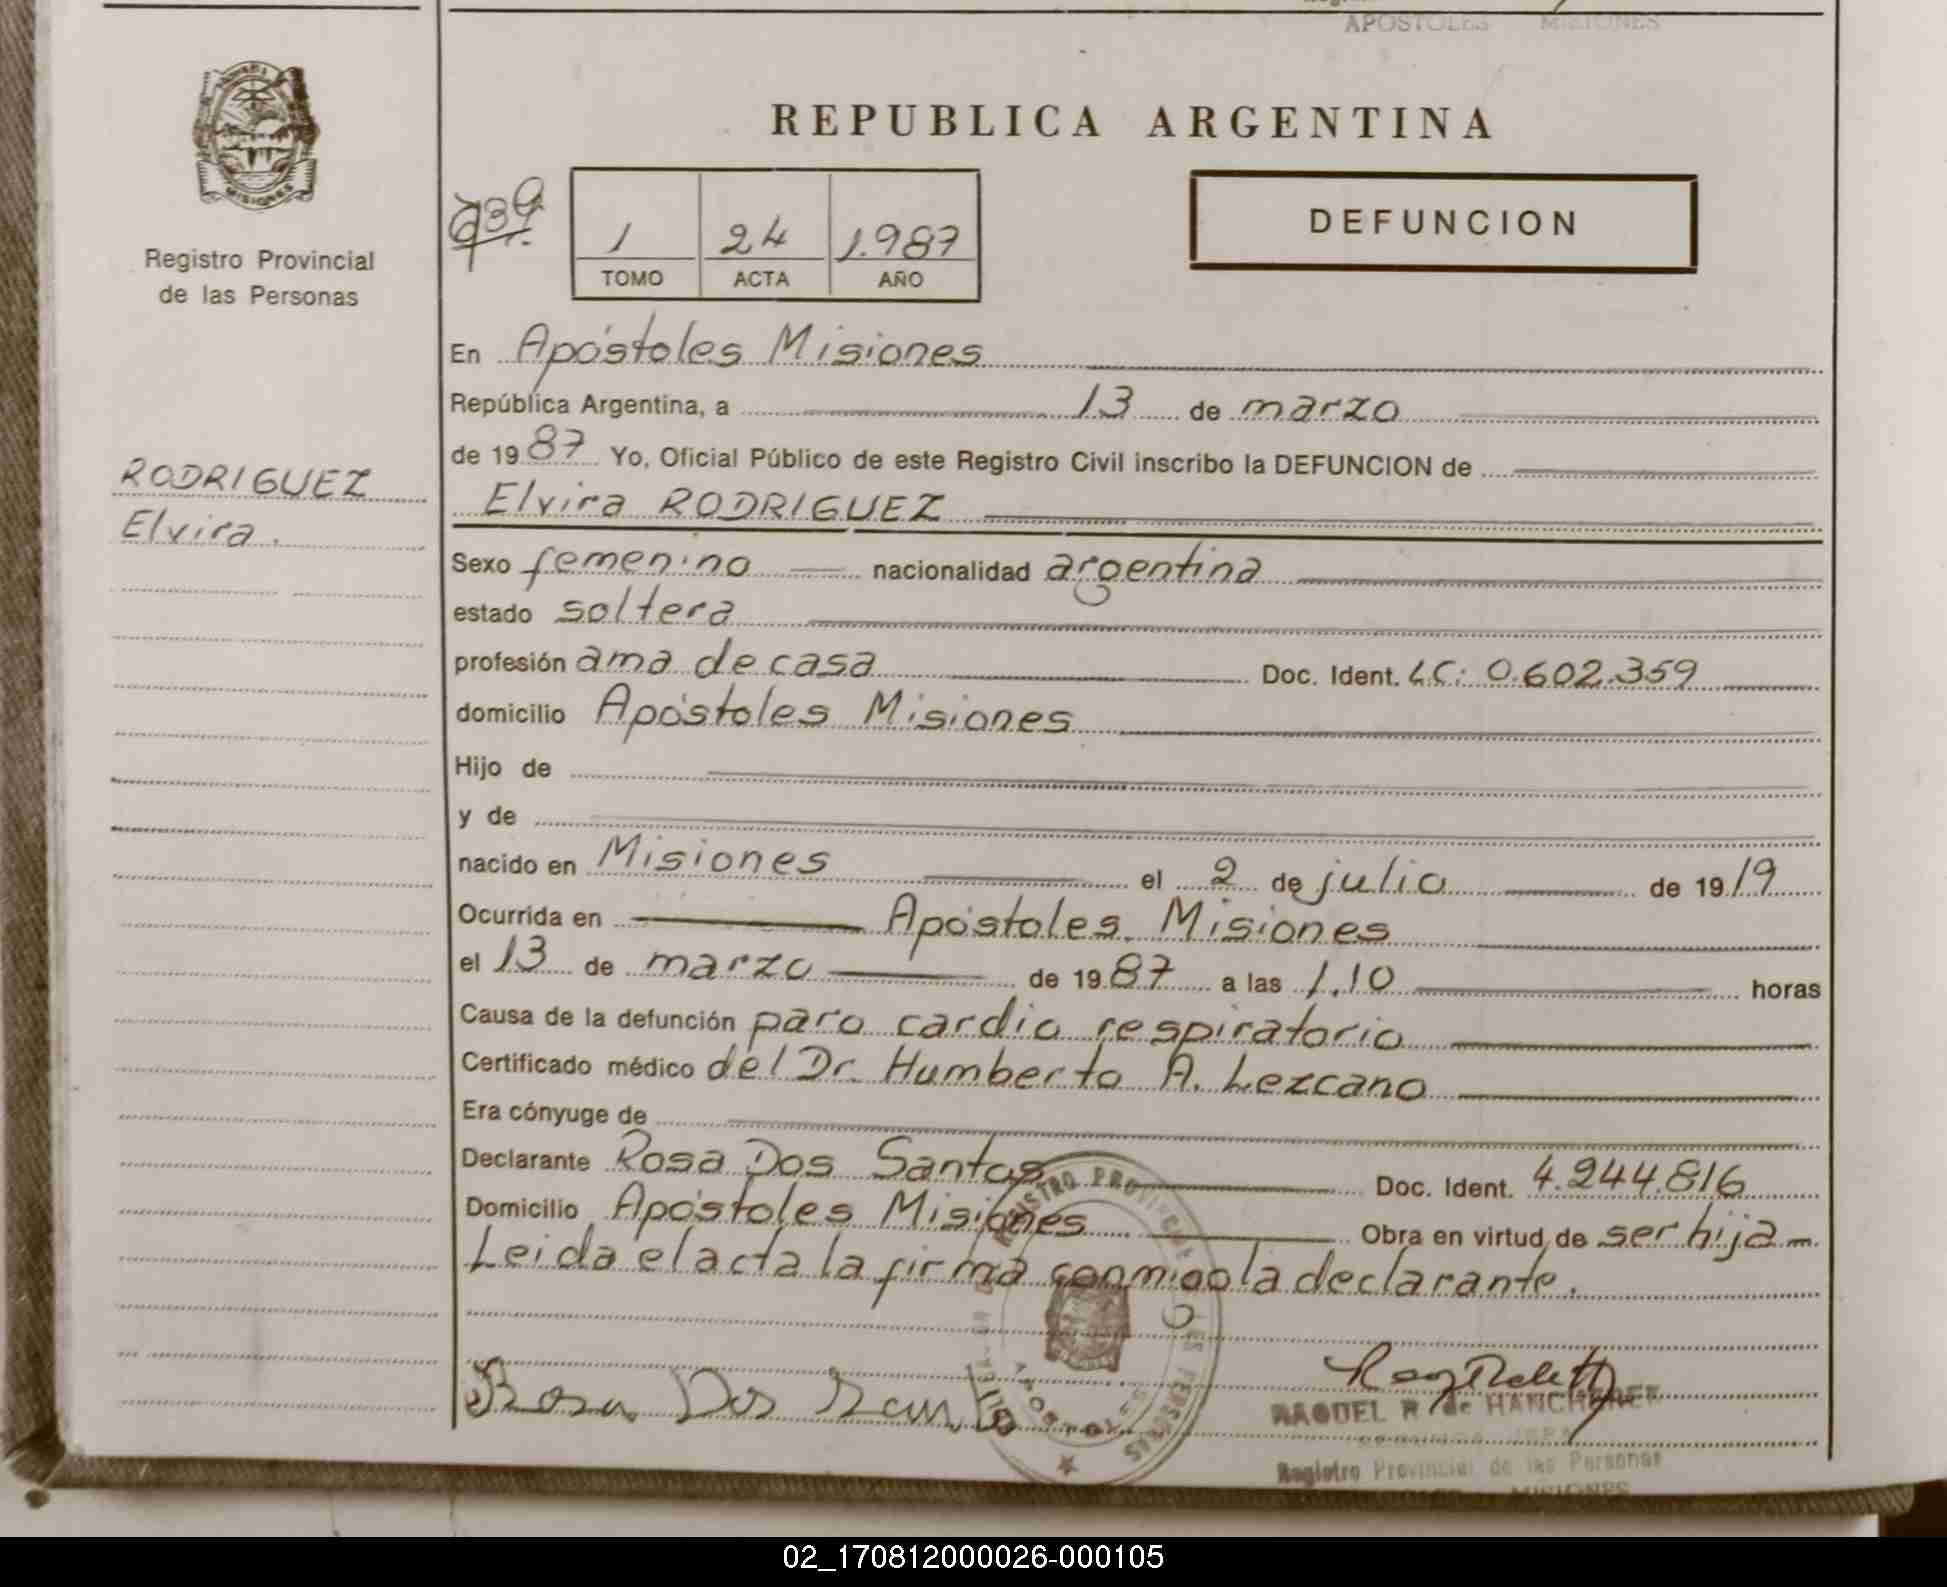 APOSTOLES MISIONES
REPUBLICA ARGENTINA
MISIONES
Registro Provincial
de las Personas
739
1 24 1.987
TOMO ACTA AÑO
DEFUNCION
En Apóstoles Misiones
República Argentina, a 13 de marzo
de 1987 Yo, Oficial Público de este Registro Civil inscribo la DEFUNCION de
RODRIGUEZ
Elvira.
Elvira RODRIGUEZ
Sexo femenino nacionalidad argentina
estado soltera
profesión ama de casa Doc. Ident. LC: 0.602.359
domicilio Apóstoles Misiones
Hijo de
y de
nacido en Misiones el 2 de julio de 1919
Ocurrida en Apóstoles Misiones
el 13 de marzo de 1987 a las 1.10 horas
Causa de la defunción paro cardio respiratorio
Certificado médico del Dr. Humberto A. Lezcano
Era cónyuge de
Declarante Rosa Dos Santos Doc. Ident. 4.244.816
Domicilio Apóstoles Misiones Obra en virtud de ser hija
Leida el acta la firma conmigo la declarante.
REGISTRO PROVINCIAL DE LAS PERSONAS
Rosa Dos Santos
RAQUEL R de
Registro Provincial de las Personas
MISIONES
02_170812000026-000105